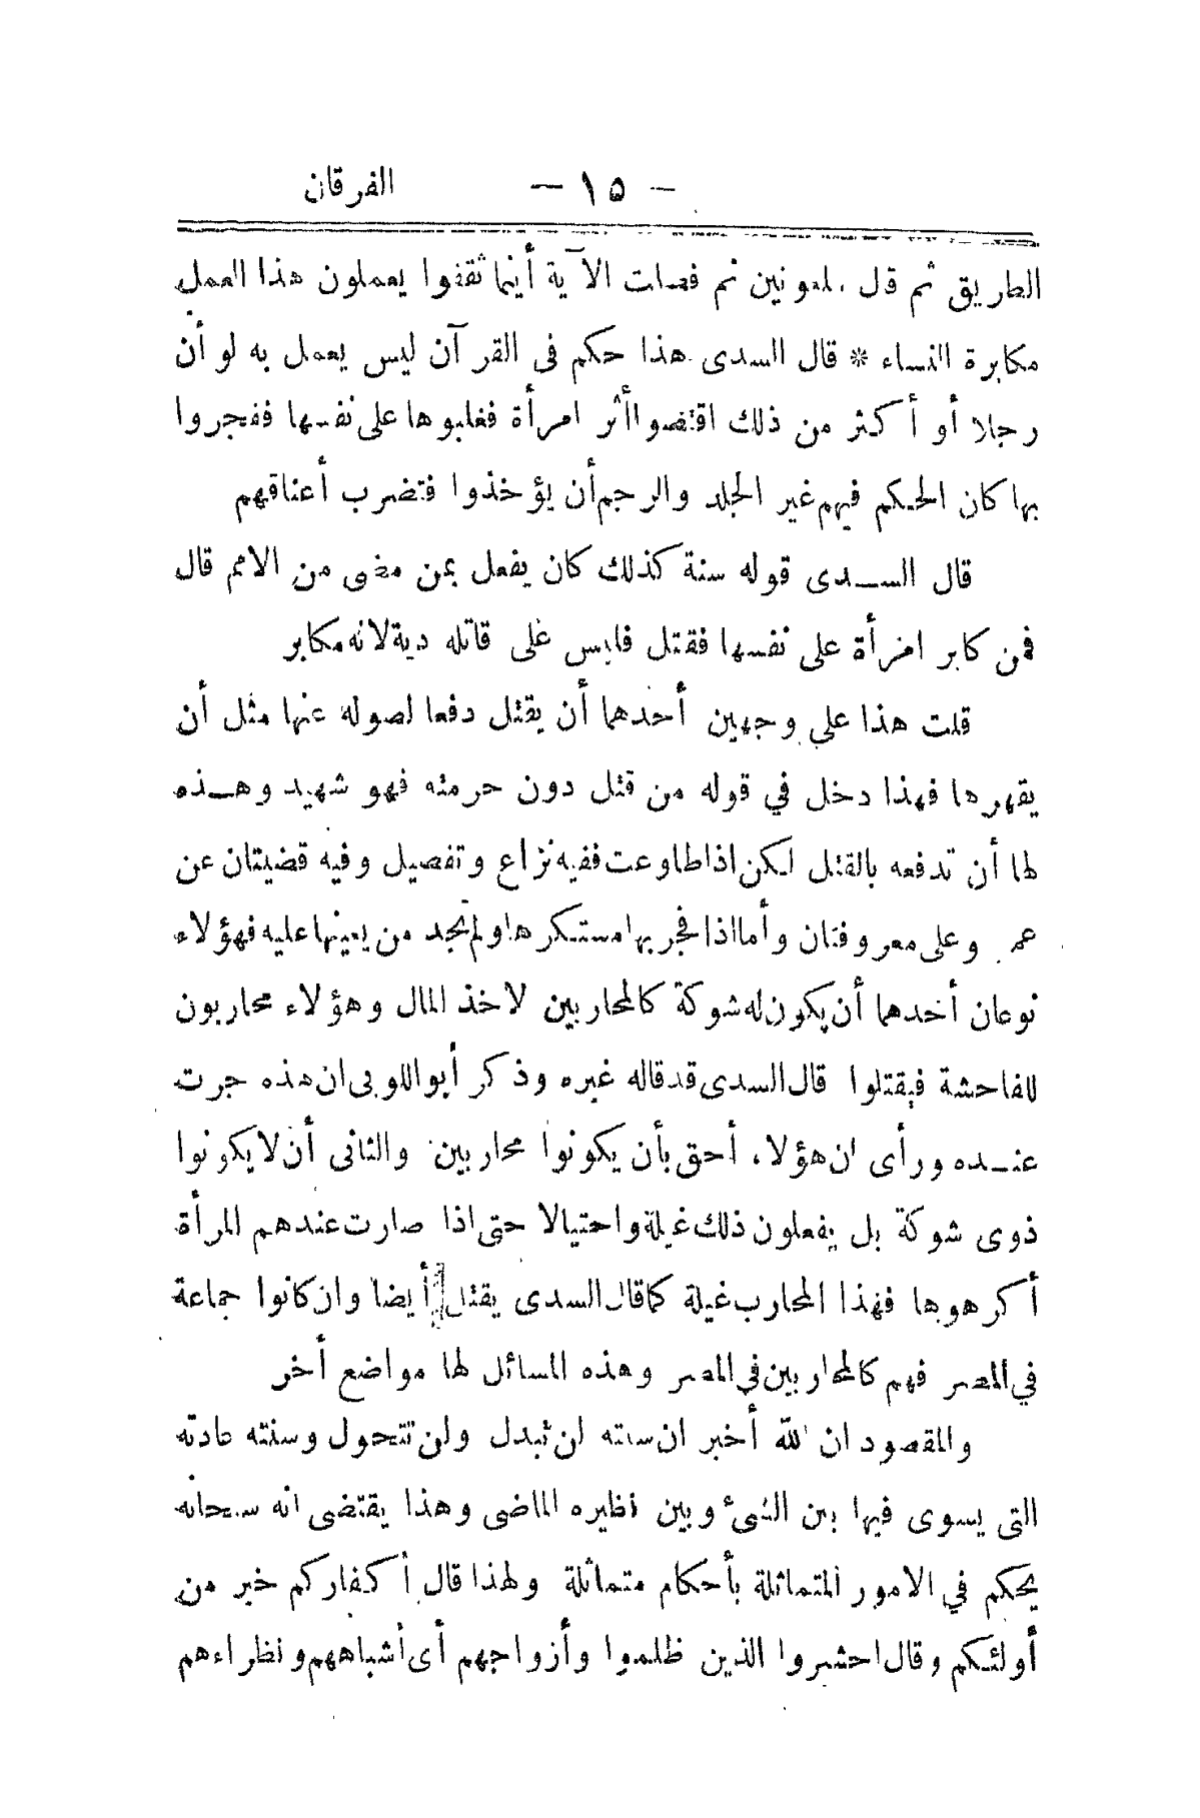 الفرقان — ١٥ —
الطريق ثم قال ملعونين ثم فصلت الآية أينما ثقفوا يعملون هذا العمل
مكابرة النساء * قال السدى هذا حكم فى القرآن ليس يعمل به لو أن
رجلا أو أكثر من ذلك اقتصوا أثر امرأة فغلبوها على نفسها ففجروا
بها كان الحكم فيهم غير الجلد والرجم أن يؤخذوا فتضرب أعناقهم
قال السدى قوله سنة كذلك كان يفعل بمن مضى من الامم قال
فمن كابر امرأة على نفسها فقتل فليس على قاتله دية لانه مكابر
قلت هذا على وجهين أحدهما أن يقتل دفعا لصوله عنها مثل أن
يقهرها فهذا دخل في قوله من قتل دون حرمته فهو شهيد وهذه
لها أن تدفعه بالقتل لكن اذا طاوعت ففيه نزاع وتفصيل وفيه قضيتان عن
عمر وعلى معروفتان وأما اذا فجر بها مستكرها ولم تجد من يعينها عليه فهؤلاء
نوعان أحدهما أن يكون له شوكة كالمحاربين لاخذ المال وهؤلاء محاربون
للفاحشة فيقتلوا قال السدى قد قاله غيره وذكر أبو اللوبى ان هذه جرت
عنده ورأى ان هؤلاء أحق بأن يكونوا محاربين والثانى أن لا يكونوا
ذوى شوكة بل يفعلون ذلك غيلة واحتيالا حتى اذا صارت عندهم المرأة
أكرهوها فهذا المحارب غيلة كما قال السدى يقتل أيضا وان كانوا جماعة
في المصر فهم كالمحاربين في المصر وهذه المسائل لها مواضع أخر
والمقصود ان الله أخبر ان سنته لن تبدل ولن تتحول وسنته عادته
التى يسوى فيها بين الشىء وبين نظيره الماضى وهذا يقتضى انه سبحانه
يحكم في الامور المتماثلة بأحكام متماثلة ولهذا قال أكفاركم خير من
أولئكم وقال احشروا الذين ظلموا وأزواجهم أى أشباههم ونظراءهم